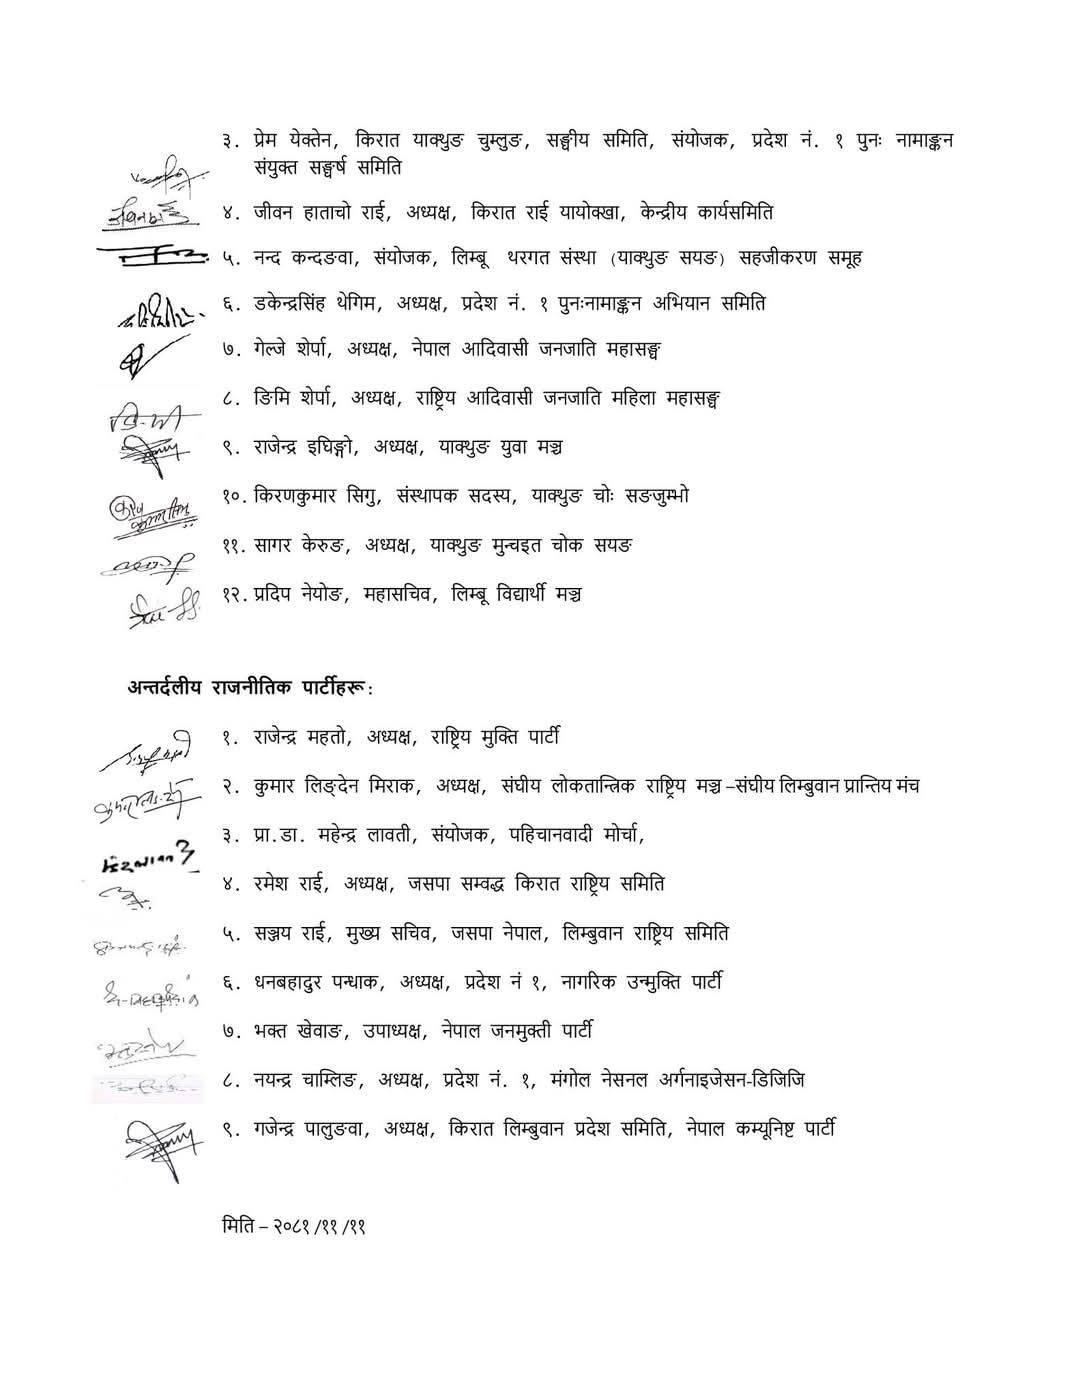 ३. प्रेम येक्तेन, किरात याक्थुङ चुम्लुङ, सङ्घीय समिति, संयोजक, प्रदेश नं. १ पुनः नामाङ्कन
संयुक्त सङ्घर्ष समिति
४. जीवन हाताचो राई, अध्यक्ष, किरात राई यायोक्खा, केन्द्रीय कार्यसमिति
५. नन्द कन्दङवा, संयोजक, लिम्बू थरगत संस्था (याक्थुङ सयङ) सहजीकरण समूह
६. डकेन्द्रसिंह थेगिम, अध्यक्ष, प्रदेश नं. १ पुनःनामाङ्कन अभियान समिति
७. गेल्जे शेर्पा, अध्यक्ष, नेपाल आदिवासी जनजाति महासङ्घ
८. ङिमि शेर्पा, अध्यक्ष, राष्ट्रिय आदिवासी जनजाति महिला महासङ्घ
९. राजेन्द्र इघिङ्गो, अध्यक्ष, याक्थुङ युवा मञ्च
१०. किरणकुमार सिगु, संस्थापक सदस्य, याक्थुङ चोः सङजुम्भो
११. सागर केरुङ, अध्यक्ष, याक्थुङ मुन्चइत चोक सयङ
१२. प्रदिप नेयोङ, महासचिव, लिम्बू विद्यार्थी मञ्च
अन्तर्दलीय राजनीतिक पार्टीहरू:
१. राजेन्द्र महतो, अध्यक्ष, राष्ट्रिय मुक्ति पार्टी
२. कुमार लिङ्देन मिराक, अध्यक्ष, संघीय लोकतान्त्रिक राष्ट्रिय मञ्च –संघीय लिम्बुवान प्रान्तिय मंच
३. प्रा.डा. महेन्द्र लावती, संयोजक, पहिचानवादी मोर्चा,
४. रमेश राई, अध्यक्ष, जसपा सम्वद्ध किरात राष्ट्रिय समिति
५. सञ्जय राई, मुख्य सचिव, जसपा नेपाल, लिम्बुवान राष्ट्रिय समिति
६. धनबहादुर पन्धाक, अध्यक्ष, प्रदेश नं १, नागरिक उन्मुक्ति पार्टी
७. भक्त खेवाङ, उपाध्यक्ष, नेपाल जनमुक्ती पार्टी
८. नयन्द्र चाम्लिङ, अध्यक्ष, प्रदेश नं. १, मंगोल नेसनल अर्गनाइजेसन-डिजिजि
९. गजेन्द्र पालुङवा, अध्यक्ष, किरात लिम्बुवान प्रदेश समिति, नेपाल कम्यूनिष्ट पार्टी
मिति – २०८१ /११ /११